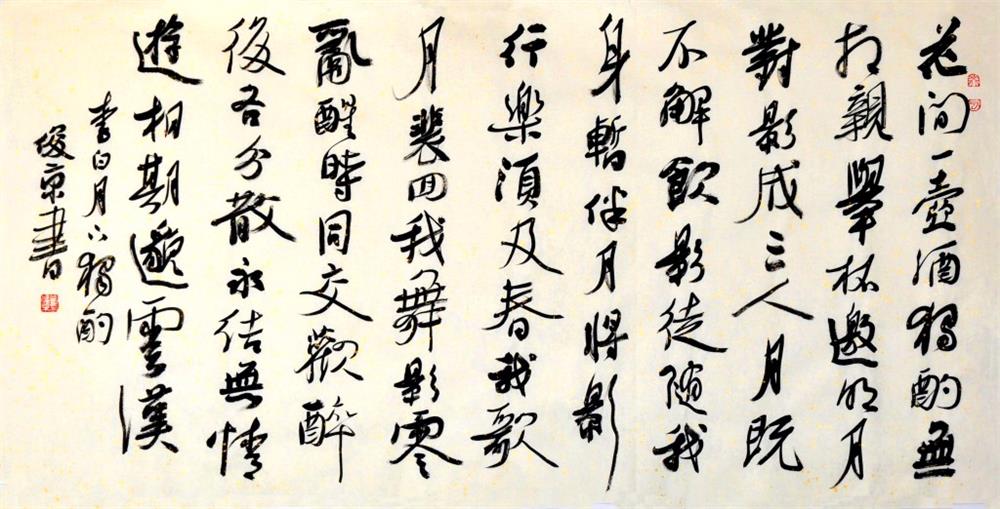 花间一壺酒獨酌無
相親舉杯邀明月
對影成三人月既
不解飲影徒隨我
身暫伴月將影
行樂須及春我歌
月裴回我舞影零
亂醒時同交歡醉
後各分散永結無情
遊相期邈雲漢
李白月下獨酌
俊京書